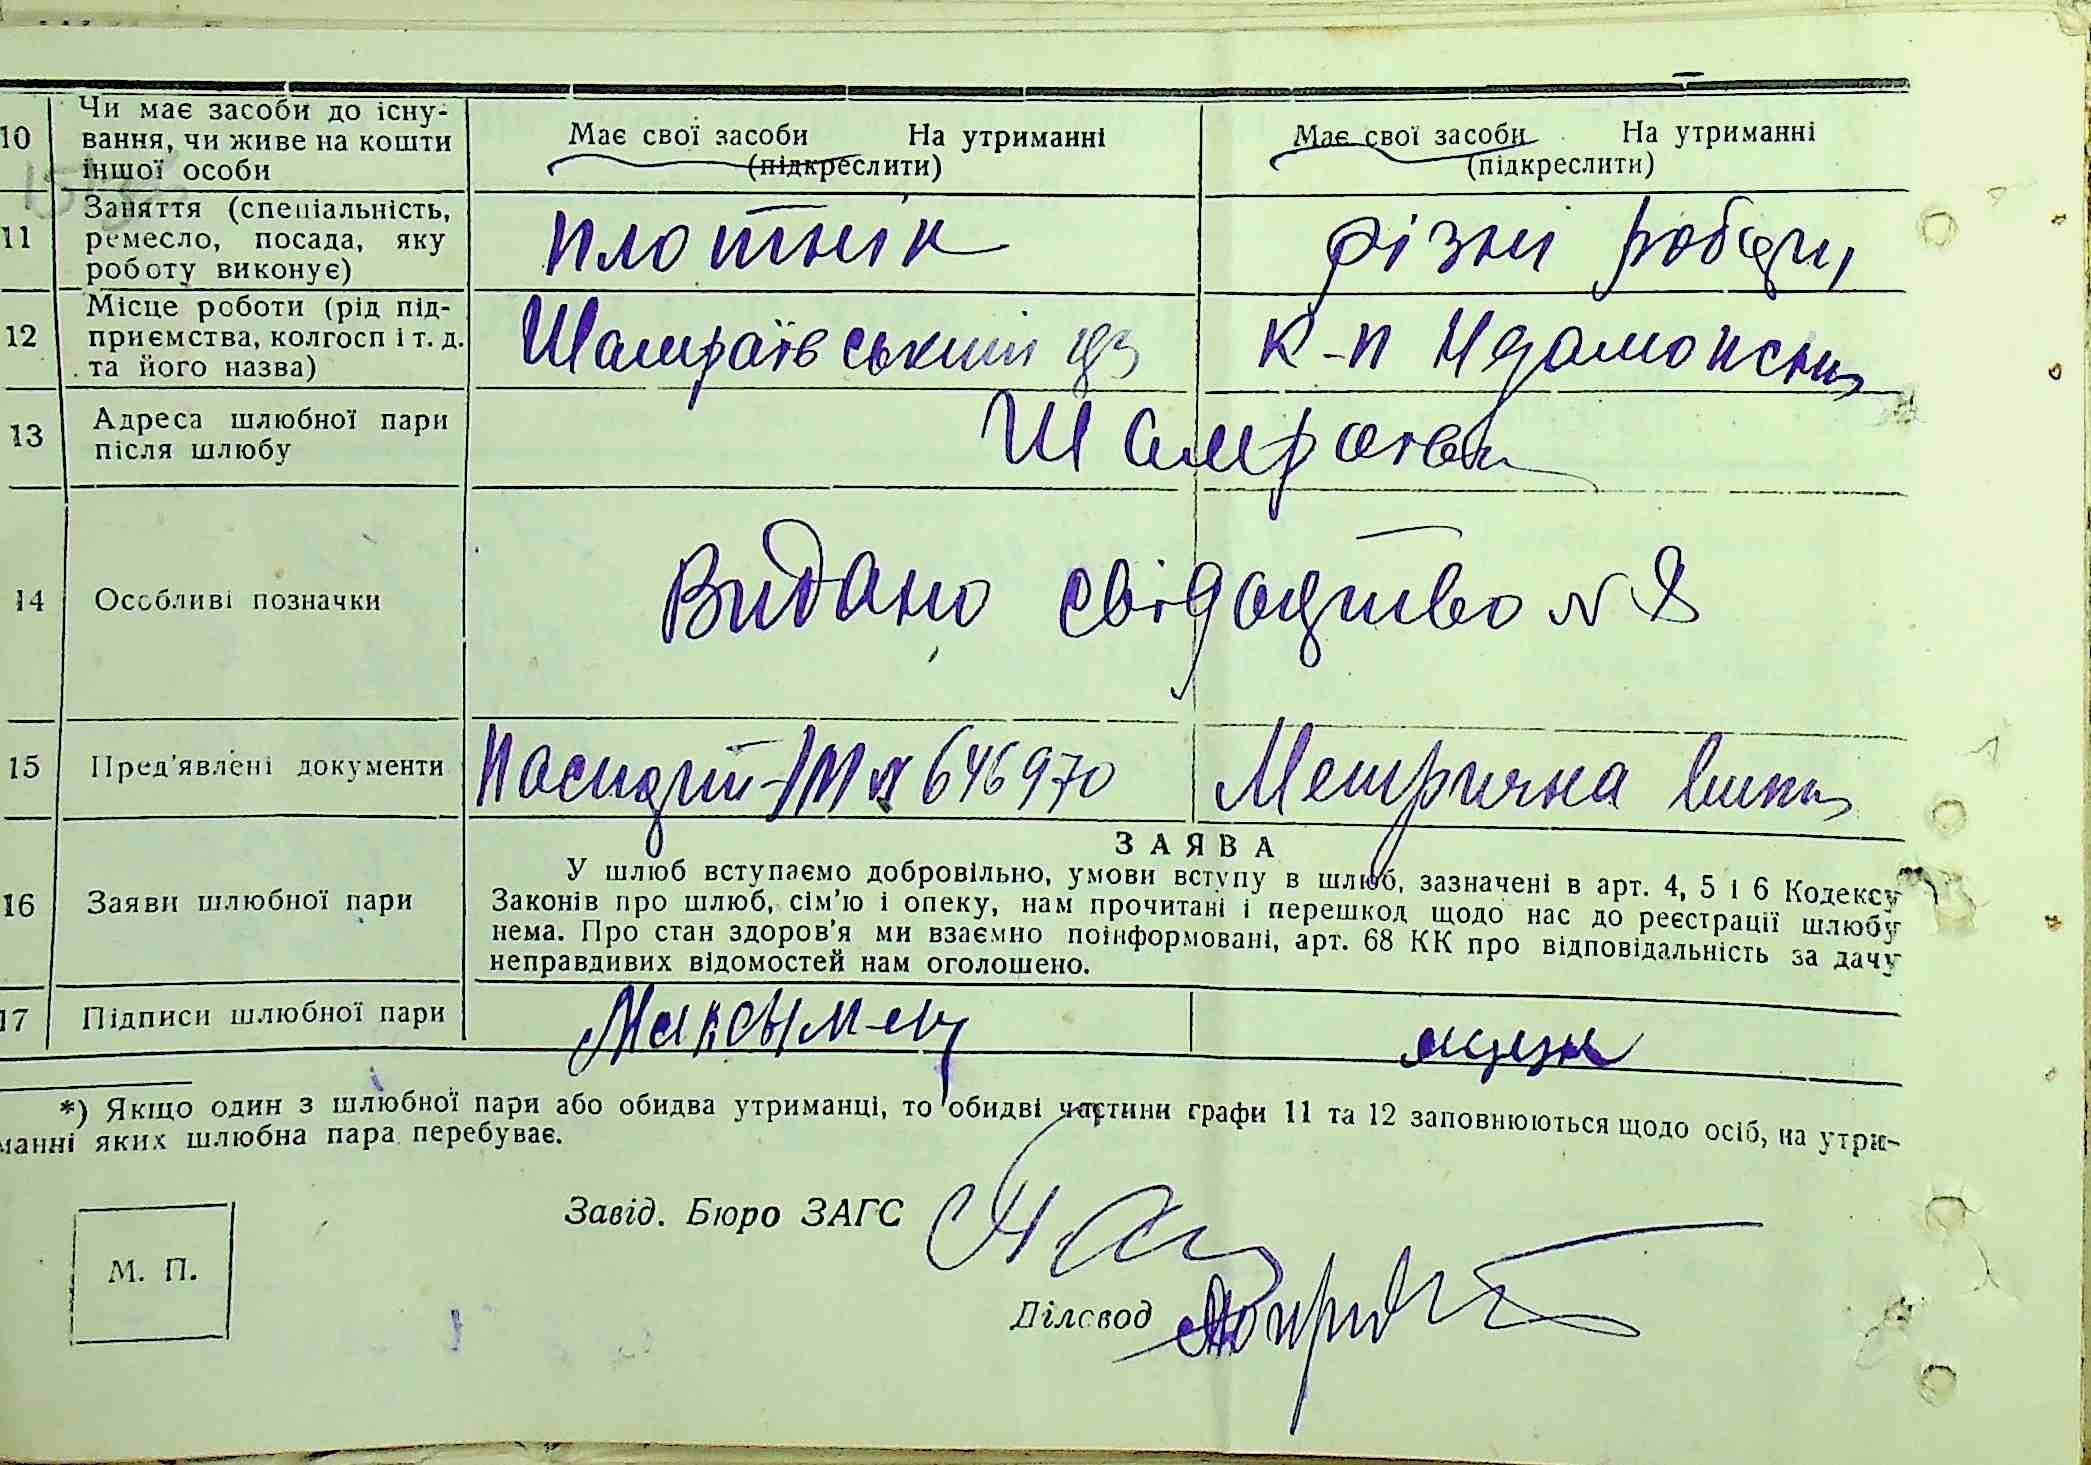 10 Чи має засоби до існу-
вання, чи живе на кошти
іншої особи
Має свої засоби На утриманні
(підкреслити)
Має свої засоби На утриманні
(підкреслити)
11 Заняття (спеціальність,
ремесло, посада, яку
роботу виконує)
плотнік
різні роботи
12 Місце роботи (рід під-
приємства, колгосп і т. д.
та його назва)
Шамраївський цз
к-п
13 Адреса шлюбної пари
після шлюбу
Шамраївка
14 Особливі позначки
Видано свідоцтво № 8
15 Пред'явлені документи
Паспорт № 646970
Метрична
16 Заяви шлюбної пари
ЗАЯВА
У шлюб вступаємо добровільно, умови вступу в шлюб, зазначені в арт. 4, 5 і 6 Кодексу
Законів про шлюб, сім'ю і опеку, нам прочитані і перешкод щодо нас до реєстрації шлюбу
нема. Про стан здоров'я ми взаємно поінформовані, арт. 68 КК про відповідальність за дачу
неправдивих відомостей нам оголошено.
17 Підписи шлюбної пари
*) Якщо один з шлюбної пари або обидва утриманці, то обидві частини графи 11 та 12 заповнюються щодо осіб, на утри-
манні яких шлюбна пара перебуває.
Завід. Бюро ЗАГС
М. П.
Діловод